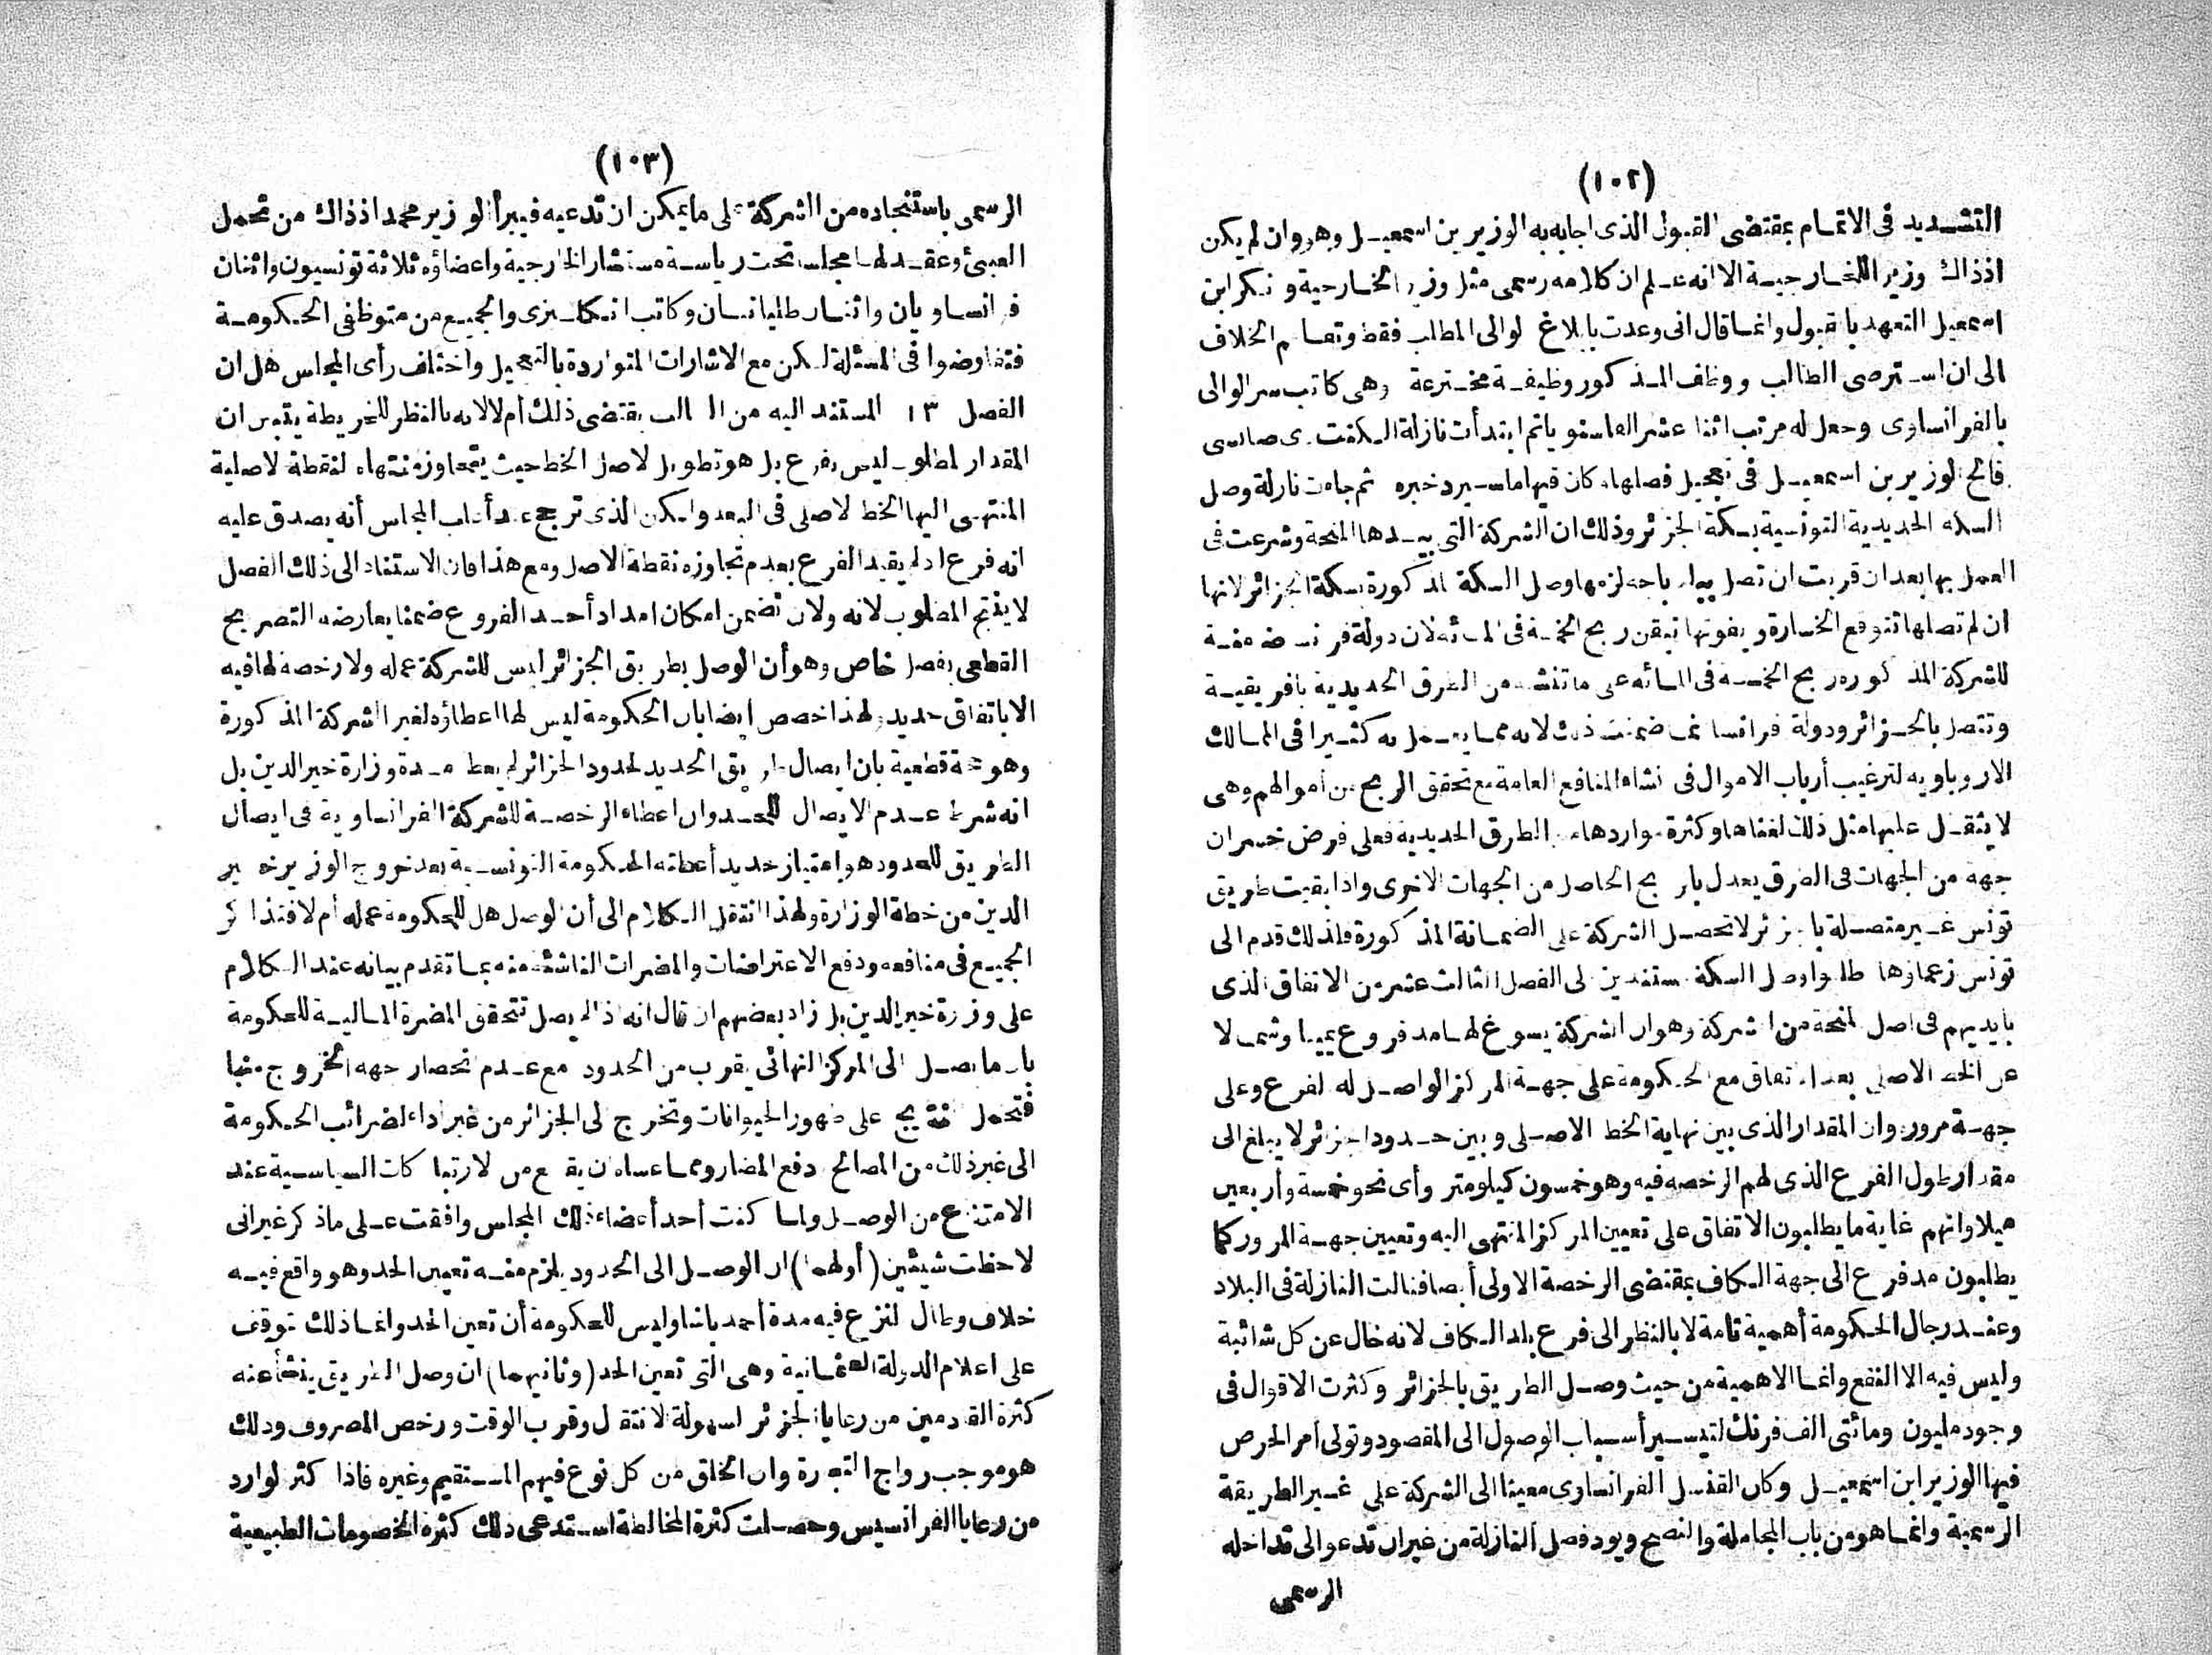 (١٠٢)
التشديد فى الاتمام بمقتضى القبول الذى اجابه به الوزير بن اسمعيل وهو وان لم يكن
اذذاك وزير اللخارجية الا انه علم ان كلامه رسمى مثل وزير الخارجية و نكر ابن
اسمعيل التعهد بالقبول وانما قال انى وعدت بابلاغ لوالى المطلب فقط وتفاقم الخلاف
الى ان استرضى الطالب ووظف المذكور وظيفة مخترعة وهى كاتب سر الوالى
بالفرانساوى وجعل له مرتب اثنا عشر الفا سنويا ثم ابتدأت نازلة الكنت دى صانسى
فالح لوزير بن اسمعيل فى تعجيل فصلها وكان فيها ما سيرد خبره ثم جاءت نازلة وصل
السكه الحديدية التونسية بسكة الجزائر وذلك ان الشركة التى بيدها المنحة وشرعت فى
العمل بها بعد ان قربت ان تصل بباجه لزمها وصل السكة المذكورة بسكة الجزائر لانها
ان لم تصلها تتوقع الخسارة ويفوتها تيقن ربح الخمسة فى المائة لان دولة فرنسا ضمنة
للشركة المذكوره ربح الخمسة فى المائه على ما تنشئه من الطرق الحديدية بافريقية
وتتصل بالجزائر ودولة فرانسا انما ضمنت ذلك لانه مما يعمل به كثيرا فى الممالك
الاروباويه لترغيب أرباب الاموال فى نشاء المنافع العامة مع تحقق الربح من أموالهم وهى
لا يثقل عليها مثل ذلك لغناها وكثرة مواردها من الطرق الحديدية فعلى فرض خسران
جهة من الجهات فى الطرق يعدل بالربح الحاصل من الجهات الاخرى واذا بقيت طريق
تونس غير متصلة بالجزائر لا تحصل الشركة على الضمانة المذكورة فلذلك قدم الى
تونس زعماؤها طلبوا وصل السكة مستندين لى الفصل الثالث عشر من الاتفاق الذى
بايديهم فى اصل المنحة من الشركة وهو ان الشركة يسوغ لها مد فروع يمينا وشمالا
عن الخط الاصلى بعد الاتفاق مع الحكومة على جهة المركز الواصل له الفرع وعلى
جهة مروره وان المقدار الذى بين نهاية الخط الاصلى وبين حدود الجزائر لا يبلغ الى
مقدار طول الفرع الذى لهم الرخصه فيه وهو خمسون كيلومتر وأى نحو خمسة وأربعين
ميلا وانهم غاية ما يطلبون الاتفاق على تعيين المركز المنتهى اليه وتعيين جهة المرور كما
يطلبون مد فرع الى جهة الكاف بمقتضى الرخصة الاولى أيضا فنالت النازلة فى البلاد
وعند رجال الحكومة أهمية تامة لا بالنظر الى فرع بلد الكاف لانه خال عن كل شائبة
وليس فيه الا النفع وانما الاهمية من حيث وصل الطريق بالجزائر وكثرت الاقوال فى
وجود مليون ومائتى الف فرنك لتيسير أسباب الوصول الى المقصود وتولى أمر الحرص
فيها الوزير ابن اسمعيل وكان القنسل الفرانساوى معينا الى الشركة على غير الطريقة
الرسمية وانما هو من باب المجاملة والنصح ويود فصل النازلة من غير ان تدعو الى تداخله
الرسمى
(١٠٣)
الرسمى باستنجاده من الشركة على ما يمكن ان تدعيه فيبرأ الوزير محمد اذ ذاك من تحمل
العبئ وعقد لها مجلسا تحت رياسة مستشار الخارجية واعضاؤه ثلاثة تونسيون واثنان
فرانساويان واثنان طليانيان وكاتب انكليزى والجميع من متوظفى الحكومة
فتفاوضوا فى المسئلة لكن مع الاشارات المتواردة بالتعجيل واختلف رأى المجلس هل ان
الفصل ١٣ المستند اليه من الطالب يقتضى ذلك أم لا لانه بالنظر للخريطة يتبين ان
المقدار المطلوب ليس بفرع بل هو تطويل لاصل الخط حيث يتجاوز منتهاه لنقطة لاصلية
المنتهى اليها الخط لاصلى فى البعد ولكن الذى ترجح عند أغلب المجلس أنه يصدق عليه
انه فرع اذ لم يقيد الفرع بعدم تجاوزه نقطة الاصل ومع هذا فان الاستناد الى ذلك الفصل
لا ينتج المطلوب لانه ولان تضمن امكان امداد أحد الفروع ضمنا يعارضه التصريح
القطعى بفصل خاص وهو أن الوصل بطريق الجزائر ليس للشركة عمله ولا رخصة لها فيه
الا باتفاق جديد ولهذا خصص ايضا بان الحكومة ليس لها اعطاؤه لغير الشركة المذكورة
وهو حجة قطعية بان ايصال طريق الحديد لحدود الجزائر لم يعط مدة وزارة خير الدين بل
انه شرط عدم الايصال للحد وان اعطاء الرخصة للشركة الفرانساوية فى ايصال
الطريق للحدود هو امتياز جديد أعطته الحكومة التونسية بعد خروج الوزير خير
الدين من خطة الوزارة ولهذا انتقل الكلام الى أن الوصل هل للحكومة عمله أم لا فتذاكر
الجميع فى منافعه ودفع الاعتراضات والمضرات الناشئة منه بما تقدم بيانه عند الكلام
على وزرة خير الدين بل زاد بعضهم ان قال انه اذا لم يصل تتحقق المضرة المالية للحكومة
بان ما يصل الى المركز النهائى بقرب من الحدود مع عدم انحصار جهة الخروج منها
فتحمل النتايج على ظهور الحيوانات وتخرج لى الجزائر من غير اداء لضرائب الحكومة
الى غير ذلك من المصالح ودفع المضار ومما عساه ان يقع من الارتباكات السياسية عند
الامتناع من الوصل ولما كنت أحد أعضاء ذلك المجلس وافقت على ما ذكر غير انى
لاحظت شيئين (أولهما) ان الوصل الى الحدود يلزم منه تعيين الحد وهو واقع فيه
خلاف وطال لنزع فيه مدة أحمد باشا وليس للحكومة أن تعين الحد وانما ذلك متوقف
على اعلام الدولة العثمانية وهى التى تعين الحد (وثانيهما) ان وصل الطريق ينشأ عنه
كثرة القادمين من رعايا الجزائر لسهولة لانتقال وقرب الوقت ورخص المصروف وذلك
هو موجب رواج التجارة وان الخلق من كل نوع فيهم المستقيم وغيره فاذا كثر لوارد
من رعايا الفرانسيس وحصلت كثرة المخالطة استدعى ذلك كثرة الخصومات الطبيعية